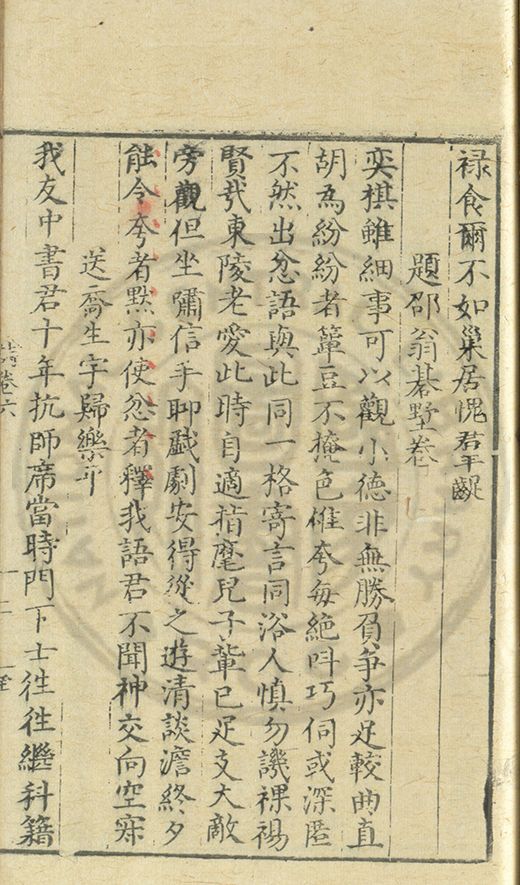 祿食爾不如巢居愧君平齯
題邵翁碁墅卷
奕棋雖細事可以觀小德非無勝負爭亦足較曲直
胡為紛紛者簞豆不掩色雄夸每絕叫巧伺或深匿
不然出忿語與此同一格寄言同浴人慎勿譏裸裼
賢哉東陵老愛此時自適指麾兒子輩已足支大敵
旁觀但坐嘯信手聊戲劇安得從之遊清談澹終夕
能令夸者默亦使忿者釋我語君不聞神交向空寂
送喬生宇歸樂平
我友中書君十年抗師席當時門下士往往繼科籍
卷六